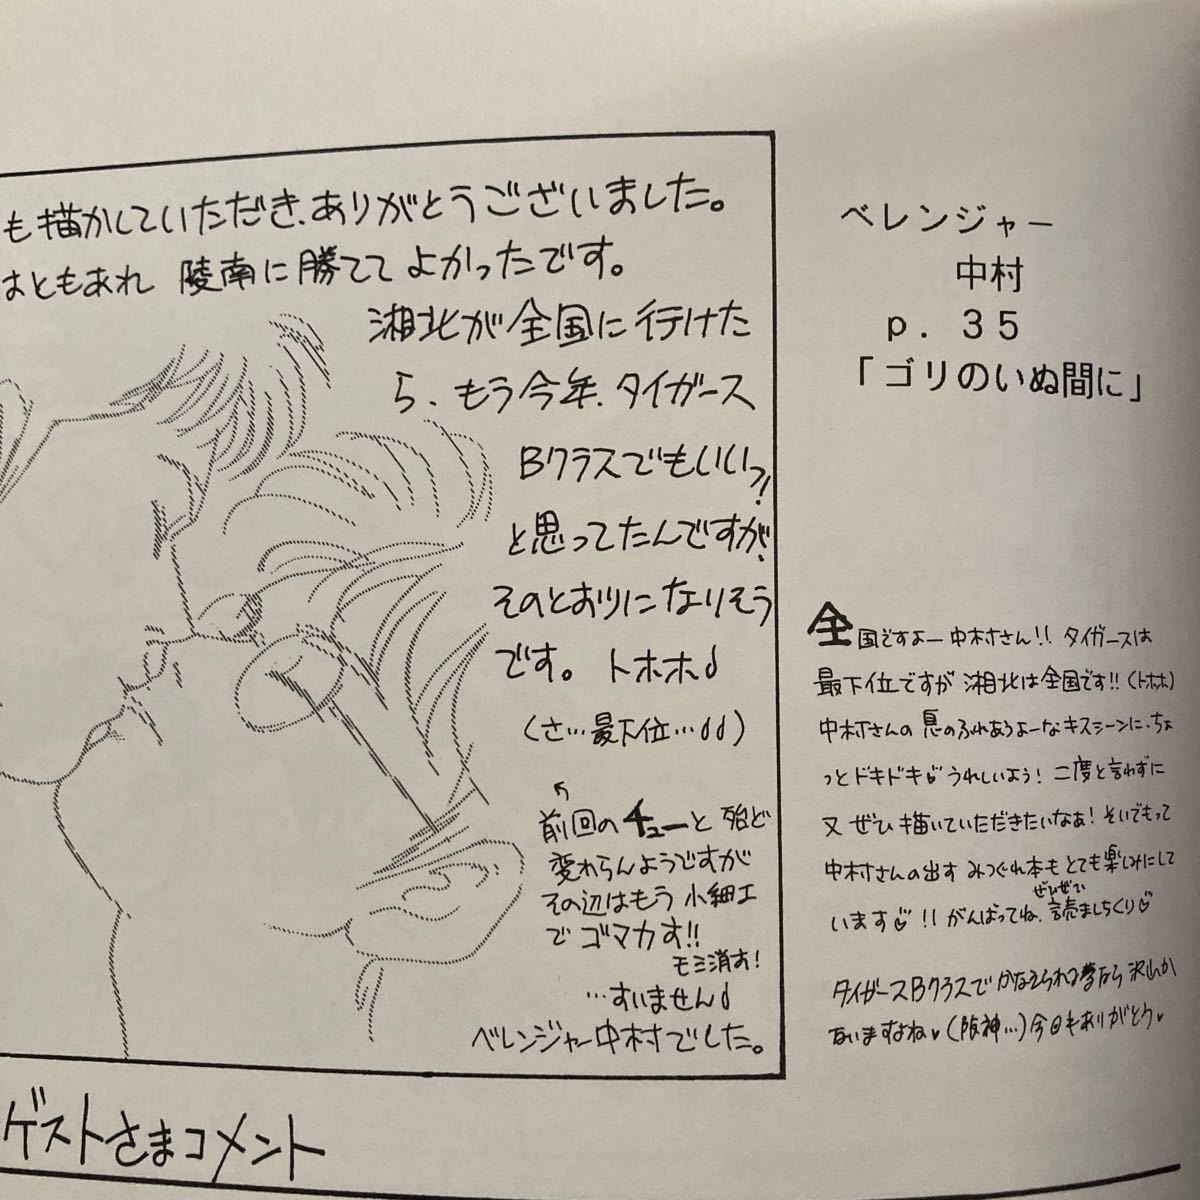 も描かしていただき、ありがとうございました。
はともあれ 陵南に勝ててよかったです。
湘北が全国に行けた
ら、もう今年、タイガース
Bクラスでもいいっ!
と思ってたんですが、
そのとおりになりそう
です。トホホ♪
(さ…最下位…♪♪)
前回のチューと殆ど
変わらんようですが
その辺はもう小細工
でゴマカす!!
モミ消す!
…すいません♪
ベレンジャー中村でした。
ゲストさまコメント
ベレンジャー
中村
p.35
「ゴリのいぬ間に」
全国ですよー中村さん!! タイガースは
最下位ですが 湘北は全国です!!(トホホ)
中村さんの息のふれあうよーなキスシーンに、ちょ
っとドキドキ♡うれしいよう! 二度と言わずに
又 ぜひ描いていただきたいなあ! そいでもって
中村さんの出す みつぐれ本も とても楽しみにして
ぜひぜひ
います♡!! がんばってね、読ましちくり♡
タイガースBクラスで かなえられる夢なら 沢山か
ないますよね♥(阪神…)今回もありがとう♥